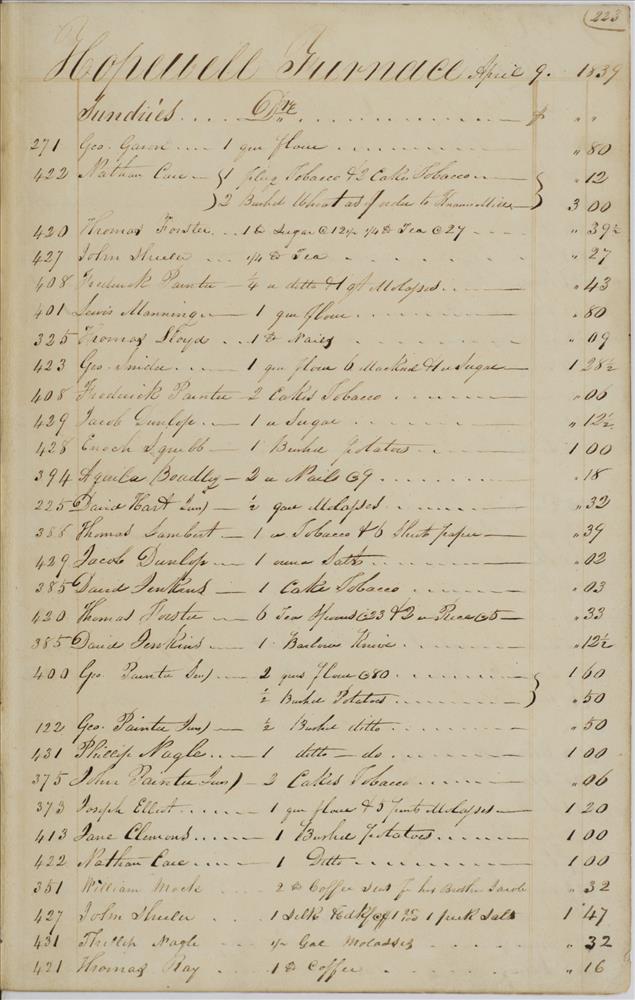 223
Hopewell Furnace April 9. 1839
Sundries .... Drs $ " "
271 Geo. Garson 1 qur flour " 80
422 Nathan Care 1 plug Tobacco & 2 Cakes Tobacco " 12
2 Bushel Wheat as pr order to 3 00
420 Thomas Forster 1 lb Sugar @ 12½ ¼ lb Tea @ 27 " 39½
427 John Sheeler ¼ lb Tea " 27
408 Frederick Painter ¼ " ditto & 1 qt Molasses " 43
401 Lewis Manning 1 qur flour " 80
325 Thomas Lloyd 1 lb Nails " 09
423 Geo. Snider 1 qur flour 6 Mackrel & 1 " Sugar 1 28½
408 Frederick Painter 2 Cakes Tobacco " 06
429 Jacob Dunlop 1 " Sugar " 12½
428 Enoch Squibb 1 Bushel Potatoes 1 00
394 Aquila Boadley 2 " Nails @ 9 " 18
225 David Hart Junr ½ gall Molasses " 32
388 Thomas Lambert 1 " Tobacco & 6 Sheets paper " 39
429 Jacob Dunlop 1 ounce Salts " 02
385 David Jenkins 1 Cake Tobacco " 03
420 Thomas Forster 6 Tea Spoons @ 23 & 2 " Rice @ 5 " 33
385 David Jenkins 1 Barlow Knive " 12½
400 Geo. Painter Senr 2 qurs flour @ 80 1 60
½ Bushel Potatoes " 50
122 Geo. Painter Junr ½ Bushel ditto " 50
431 Phillip Nagle 1 ditto do 1 00
375 John Painter Junr 2 Cakes Tobacco " 06
373 Joseph Elliot 1 qur flour & 5 pints Molasses 1 20
413 Jane Clemons 1 Bushel Potatoes 1 00
422 Nathan Care 1 Ditto 1 00
351 William Mock 2 lb Coffee Sent pr his Brother Jacob " 32
427 John Sheeler 1 Silk Hdkf 1 peck Salt 1 47
431 Phillip Nagle ½ Gal Molasses " 32
421 Thomas Ray 1 lb Coffee " 16